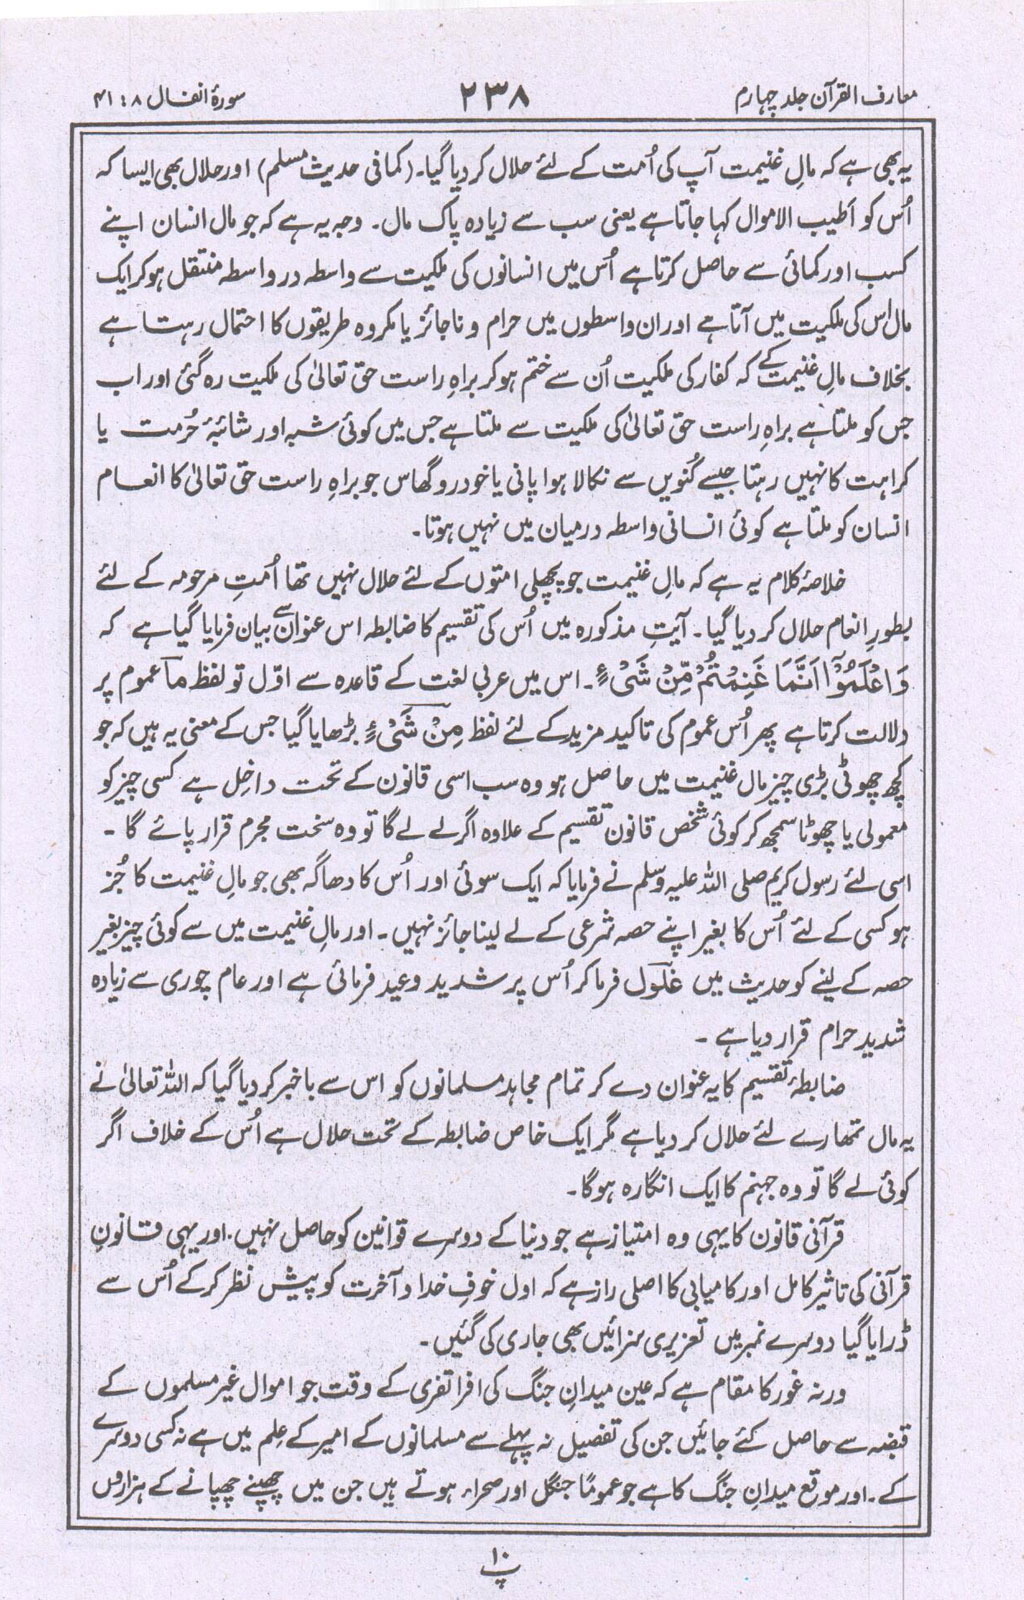 معارف القرآن جلد چہارم ۲۳۸ سورۂ انفال ۸: ۴۱
یہ بھی ہے کہ مالِ غنیمت آپ کی اُمت کے لئے حلال کر دیا گیا۔ (کما فی حدیث مسلم) اور حلال بھی ایسا کہ
اُس کو اَطیب الاموال کہا جاتا ہے یعنی سب سے زیادہ پاک مال۔ وجہ یہ ہے کہ جو مال انسان اپنے
کسب اور کمائی سے حاصل کرتا ہے اُس میں انسانوں کی ملکیت سے واسطہ در واسطہ منتقل ہو کر ایک
مال اس کی ملکیت میں آتا ہے اور ان واسطوں میں حرام و ناجائز یا مکروہ طریقوں کا احتمال رہتا ہے
بخلاف مالِ غنیمت کے کہ کفار کی ملکیت اُن سے ختم ہو کر براہِ راست حق تعالیٰ کی ملکیت رہ گئی اور اب
جس کو ملتا ہے براہِ راست حق تعالیٰ کی ملکیت سے ملتا ہے جس میں کوئی شبہ اور شائبۂ حُرمت یا
کراہت کا نہیں رہتا جیسے کُنویں سے نکالا ہوا پانی یا خود رو گھاس جو براہِ راست حق تعالیٰ کا انعام
انسان کو ملتا ہے کوئی انسانی واسطہ درمیان میں نہیں ہوتا۔
خلاصۂ کلام یہ ہے کہ مالِ غنیمت جو پچھلی امتوں کے لئے حلال نہیں تھا اُمتِ مرحومہ کے لئے
بطورِ انعام حلال کر دیا گیا۔ آیتِ مذکورہ میں اُس کی تقسیم کا ضابطہ اس عنوان سے بیان فرمایا گیا ہے کہ
وَاعْلَمُوْٓا اَنَّمَا غَنِمْتُمْ مِّنْ شَیْءٍ۔ اس میں عربی لغت کے قاعدہ سے اوّل تو لفظ ما عموم پر
دلالت کرتا ہے پھر اُس عموم کی تاکید مزید کے لئے لفظ مِنْ شَیْءٍ بڑھایا گیا جس کے معنی یہ ہیں کہ جو
کچھ چھوٹی بڑی چیز مال غنیمت میں حاصل ہو وہ سب اسی قانون کے تحت داخِل ہے کسی چیز کو
معمولی یا چھوٹا سمجھ کر کوئی شخص قانون تقسیم کے علاوہ اگر لے لے گا تو وہ سخت مجرم قرار پائے گا۔
اسی لئے رسول کریم صلی اللہ علیہ وسلم نے فرمایا کہ ایک سوئی اور اُس کا دھاگہ بھی جو مالِ غنیمت کا جُز
ہو کسی کے لئے اُس کا بغیر اپنے حصہ شرعی کے لے لینا جائز نہیں۔ اور مالِ غنیمت میں سے کوئی چیز بغیر
حصہ کے لینے کو حدیث میں غلول فرما کر اُس پر شدید وعید فرمائی ہے اور عام چوری سے زیادہ
شدید حرام قرار دیا ہے۔
ضابطۂ تقسیم کا یہ عنوان دے کر تمام مجاہد مسلمانوں کو اس سے باخبر کر دیا گیا کہ اللہ تعالیٰ نے
یہ مال تمھارے لئے حلال کر دیا ہے مگر ایک خاص ضابطہ کے تحت حلال ہے اُس کے خلاف اگر
کوئی لے گا تو وہ جہنم کا ایک انگارہ ہوگا۔
قرآنی قانون کا یہی وہ امتیاز ہے جو دنیا کے دوسرے قوانین کو حاصل نہیں۔ اور یہی قانونِ
قرآنی کی تاثیر کامل اور کامیابی کا اصلی راز ہے کہ اول خوفِ خدا و آخرت کو پیش نظر کر کے اُس سے
ڈرایا گیا دوسرے نمبر میں تعزیری سزائیں بھی جاری کی گئیں۔
ورنہ غور کا مقام ہے کہ عین میدانِ جنگ کی افراتفری کے وقت جو اموال غیر مسلموں کے
قبضہ سے حاصل کئے جائیں جن کی تفصیل نہ پہلے سے مسلمانوں کے امیر کے عِلم میں ہے نہ کسی دوسرے
کے۔ اور موقع میدانِ جنگ کا ہے جو عمومًا جنگل اور صحراء ہوتے ہیں جن میں چھپنے چھپانے کے ہزاروں
پ۱۰